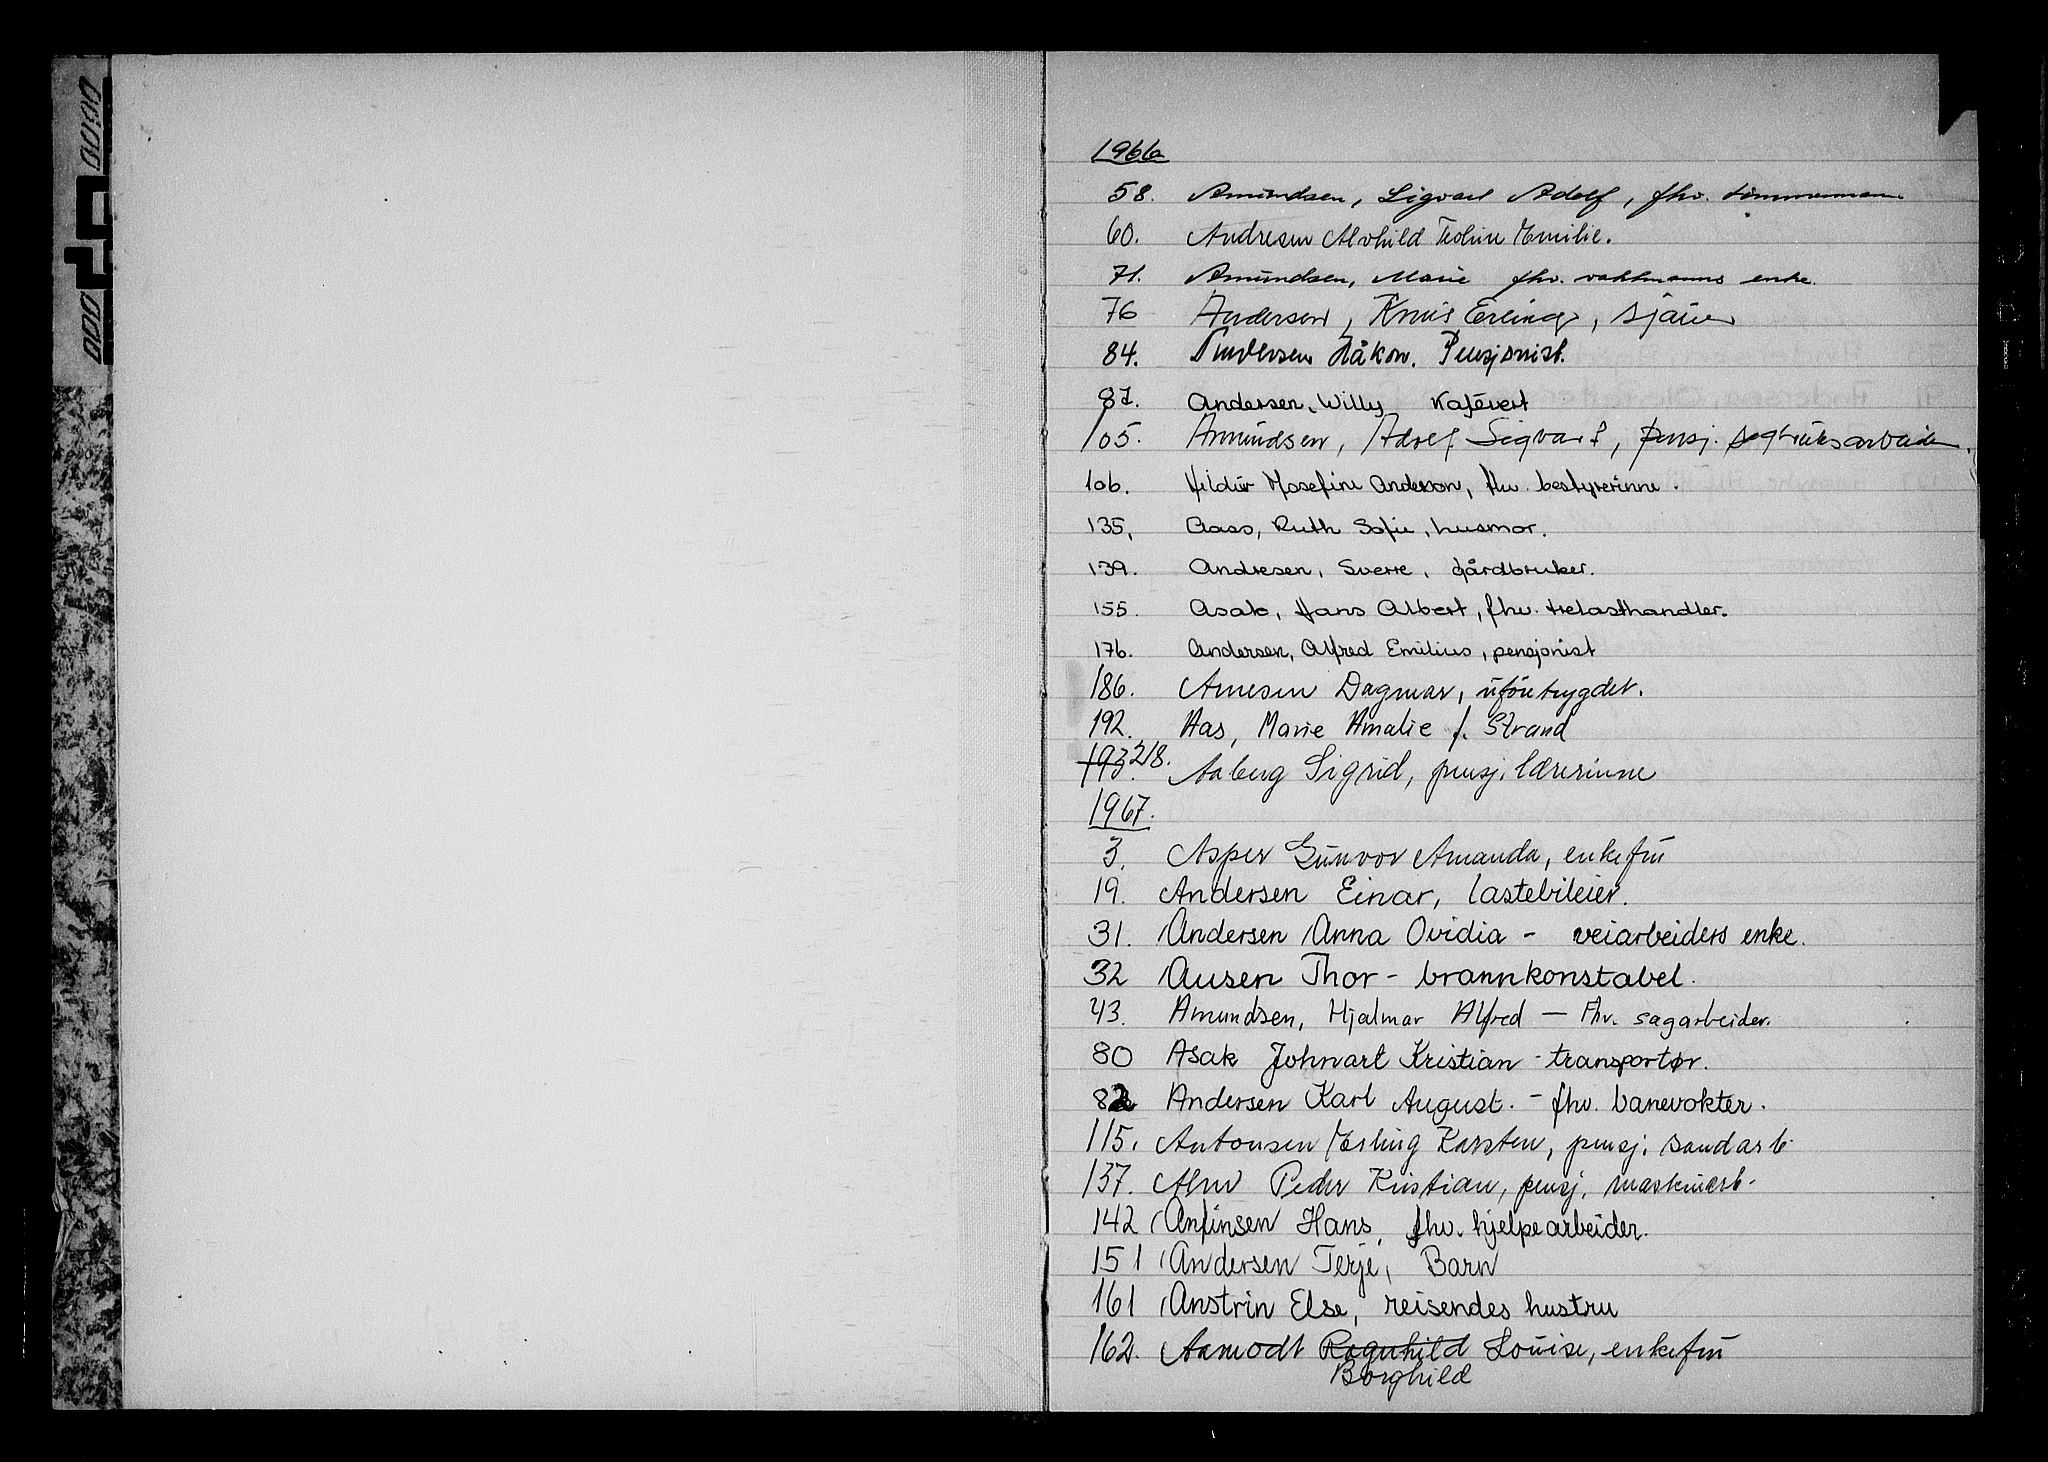 1966
58. Amundsen, Sigvart Adolf, fhv. tømmermann
60. Andresen Alvhild Emilie.
71. Amundsen, Marie fhv. vaktmanns enke.
76 Andersen, Knut Erling, sjåfør
84. Andersen Håkon. Pensjonist.
87. Andersen, Willy Kafévert
105. Amundsen, Adolf Sigvart, pensj. sagbruksarbeider.
106. Hildur Josefine Anderson, fhv. bestyrerinne.
135, Aass, Ruth Sofie, husmor.
139. Andresen, Sverre, gårdbruker.
155. Asak, Hans Albert, fhv. trelasthandler.
176. Andersen, Alfred Emilius, pensjonist
186. Arnesen Dagmar, uføretrygdet.
192. Aas, Marie Amalie f. Strand
193. 218. Aaberg Sigrid, pensj. lærerinne
1967.
3. Asper Gunvor Amanda, enkefru
19. Andersen Einar, lastebileier.
31. Andersen Anna Ovidia - veiarbeiders enke.
32 Ausen Thor - brannkonstabel.
43. Amundsen, Hjalmar Alfred - Fhv. sagarbeider.
80 Asak Johnart Kristian - transportør.
82 Andersen Karl August. - fhv. banevokter.
115. Antonsen Erling Karsten, pensj. sandarb.
137. Alm Peder Kristian, pensj. maskinarb.
142 Anfinsen Hans, fhv. hjelpearbeider.
151 Andersen Terje, Barn
161 Anstrin Else, reisendes hustru
162. Aamodt Ragnhild Louise, enkefru
Borghild